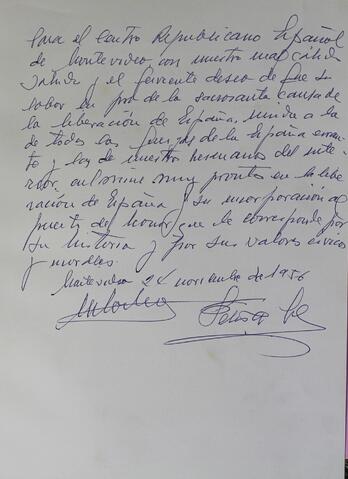 Para el Centro Republicano Español
de Montevideo, con nuestro mas cálido
saludo y el ferviente deseo de que su
labor en pro de la sacrosanta causa de
la liberación de España, unida a la
de todas las fuerzas de la España erran-
te y las de nuestros hermanos del inte-
rior, culmine muy pronto en la libe-
ración de España y su incorporación al
puesto de honor que le corresponde por
su historia y por sus valores cívicos
y morales.
Montevideo 24 noviembre de 1956